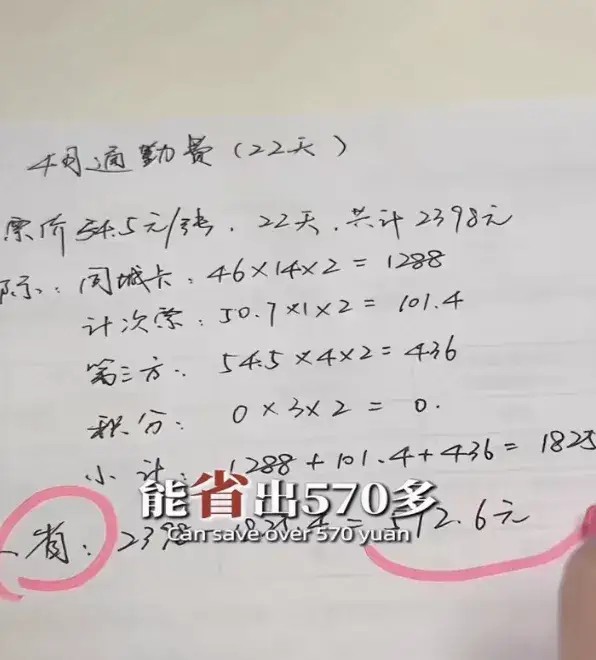 4月通勤费(22天)
票价54.5元/张.22天.共计2398元
际:同城卡:46×14×2=1288
计次票:50.7×1×2=101.4
第三方:54.5×4×2=436
积分:0×3×2=0.
小计:1288+101.4+436=1825
省:2398 1825.4=572.6元
能省出570多
Can save over 570 yuan